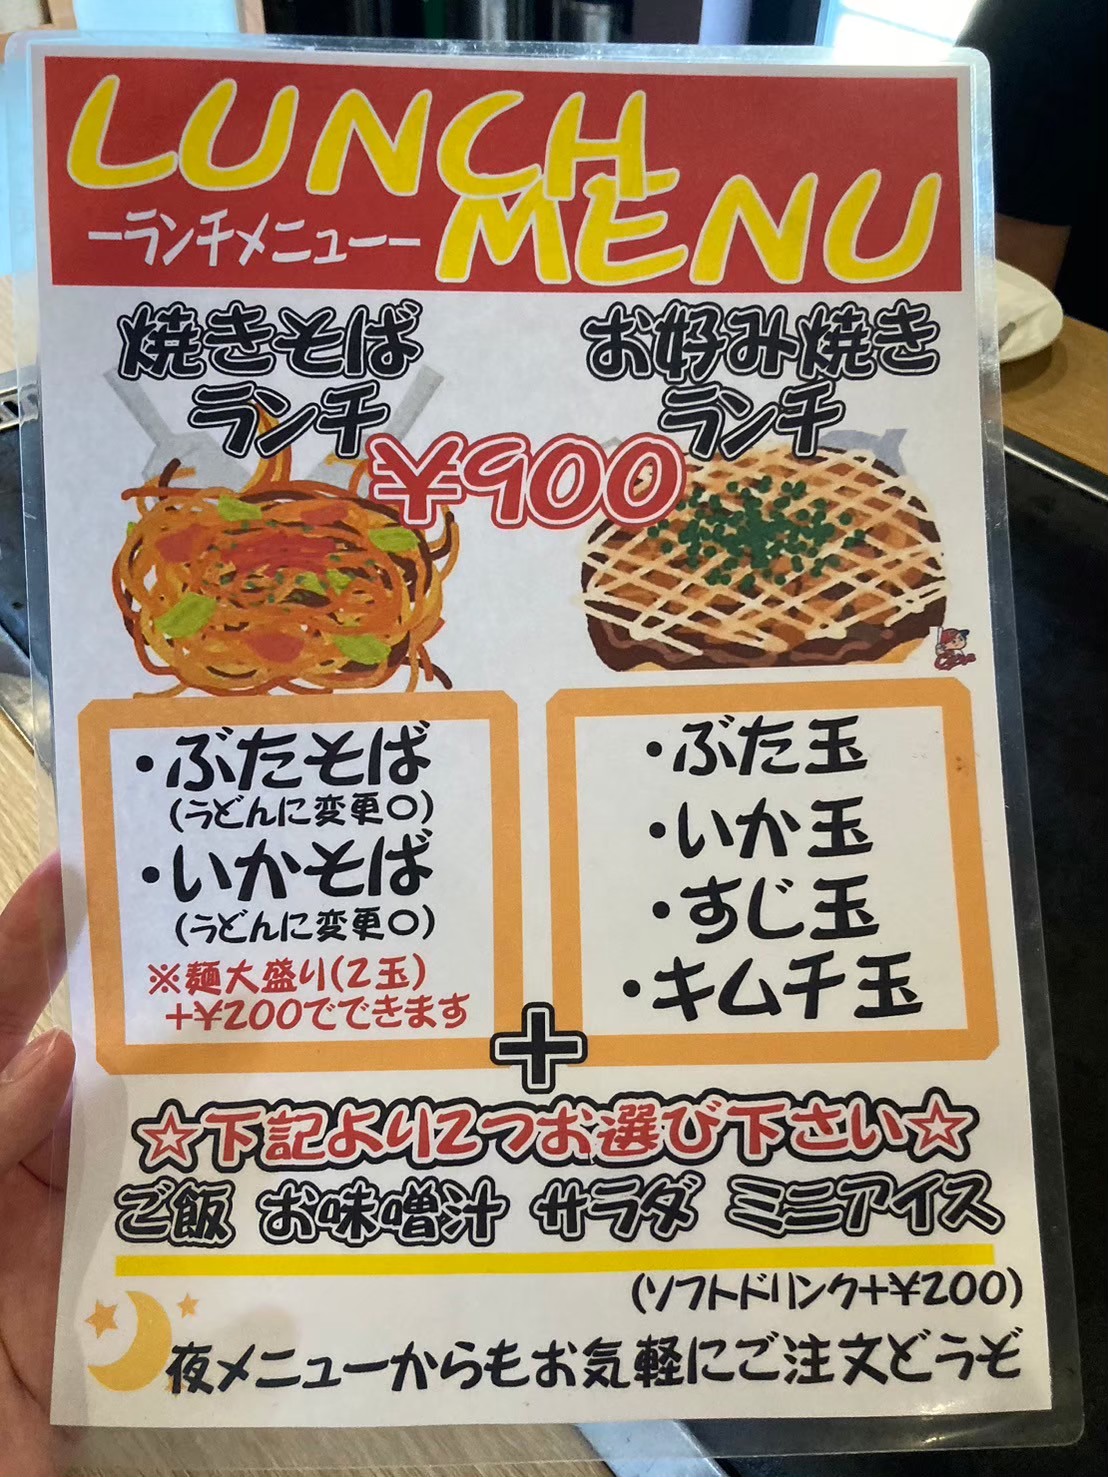 LUNCH
MENU
ーランチメニューー
焼きそば
ランチ
お好み焼き
ランチ
¥900
・ぶたそば
(うどんに変更〇)
・いかそば
(うどんに変更〇)
※麺大盛り(2玉)
+¥200でできます
・ぶた玉
・いか玉
・すじ玉
・キムチ玉
+
☆下記より2つお選び下さい☆
ご飯 お味噌汁 サラダ ミニアイス
(ソフトドリンク+¥200)
夜メニューからもお気軽にご注文どうぞ